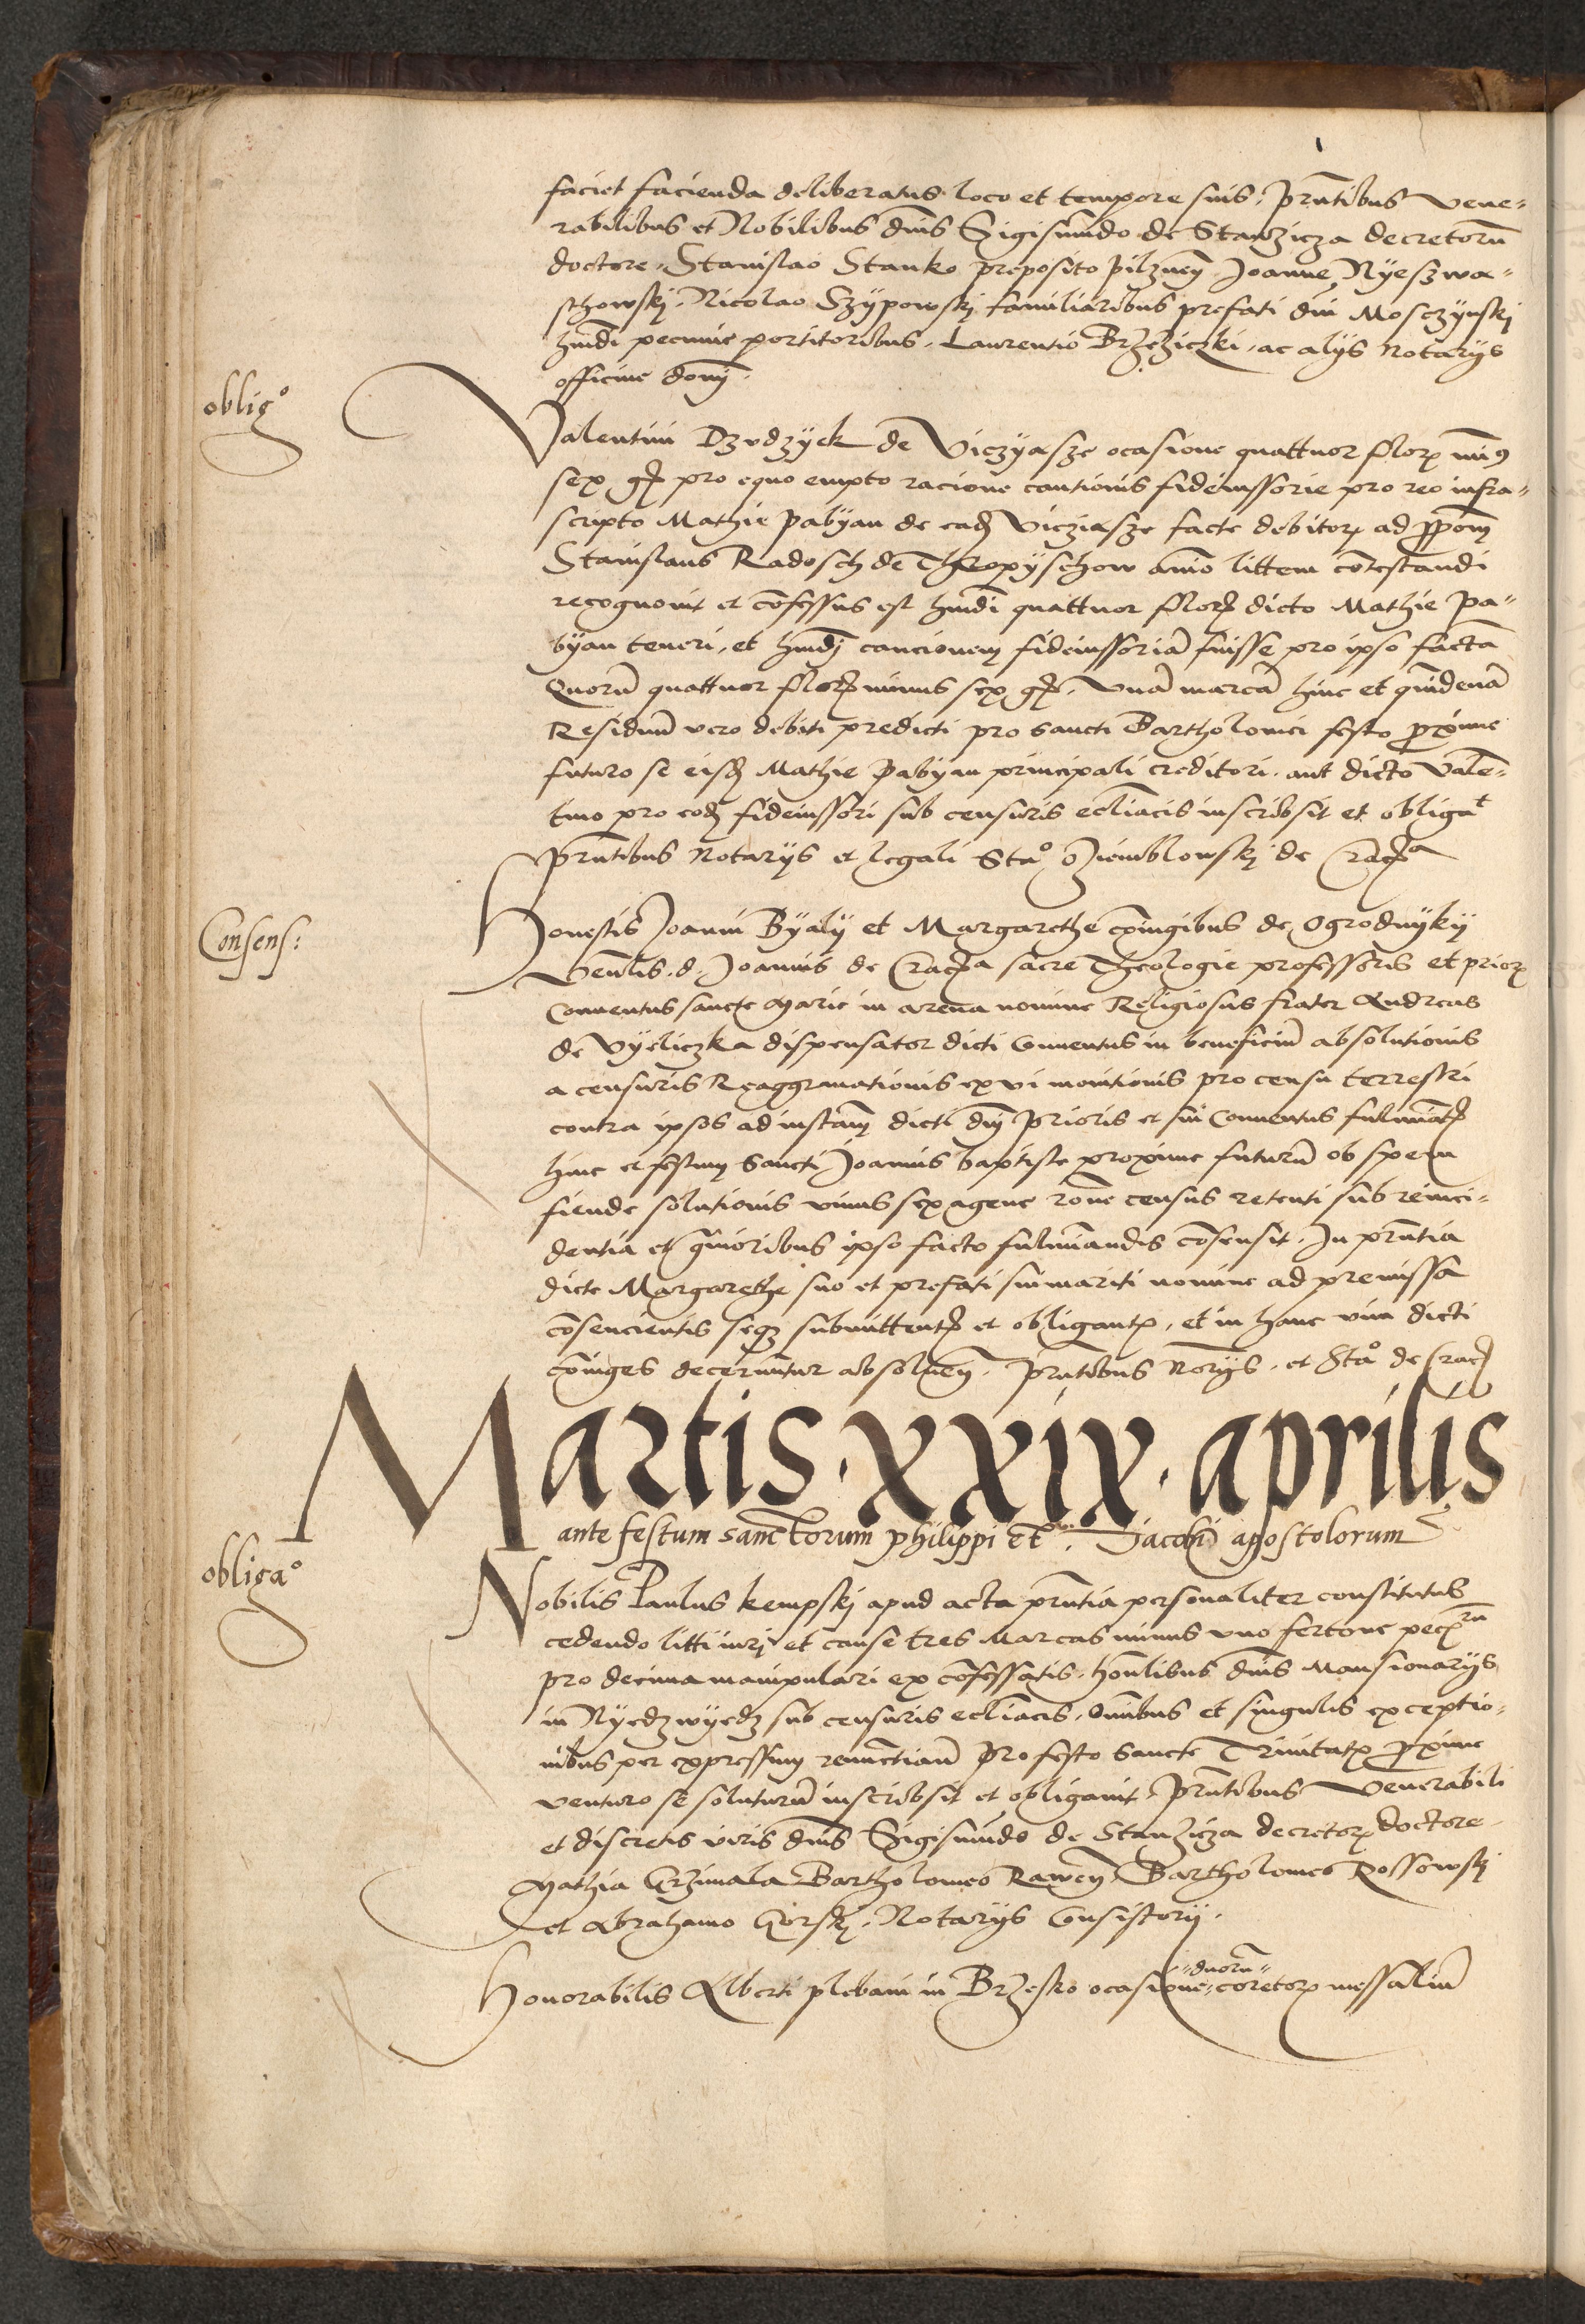 faciet facienda deliberatus loco et tempore suis, pn̄tibus Vene-
rabilibus et Nobilibus dn̄is Sigismūdo de Stanzicza decretorū
doctore, Stanislao Stanko preposito pilznen̄ Joanne Nyeszwa-
schowskj, Nicolao Szypowskj familiaribus prefati dn̄i Mosczynskj
hmōi pecunie portitoribus, Laurentio Brzeziczki, ac alijs Notarijs
officine domj.
oblig°
Valentini Dzvdzyek de Viczyasze ocasione quattuor flor mī9
sex gr pro equo empto racione cautionis fideiussorie pro reo infra-
scripto Mathie pabyan de ead Vicziasze facte debitor ad ppom̄
Stanislaus Radosch de Thropyschow animo littem cōtestandi
recognouit et cōfessus est hmōi quattuor flor dicto Mathie Pa-
byan teneri, et hmōj caucionem fideiussoriā fuisse pro ipso factā
Quorū quattuor flor minus sex gr, vnā marcā hinc et quīdenā
Residuū vero debiti predicti pro sancti Bartholomei festo proxime
futuro se eisd Mathie Pabyan principali creditori, aut dicto Valē-
tino pro eod fideiussori sub censuris eccl̄iacis inscribsit et obligat
pn̄tibus Notarijs et legali Sta° Ziemblowskj de Crac a
Consens:
Honestis Joanni Byaly et Margarethe cōiugibus de Ogrodnykij
Ven̄lis d. Joannis de Crac a sacre Theologie professoris et prior
Conuentus sancte Marie in arena nomine Religiosus frater Andreas
de Vyeliczka dispensator dicti Conuentus in beneficiū absolutionis
a censuris Reaggrauationis ex vi monitionis pro censu terrestri
contra ipsos ad instam̄ dicti dnj Prioris et sui Conuentus fulminat
hinc et festum Sancti Joannis baptiste proxime futurū ob spem
fiende solutionis vnius sexagene rōne census retenti sub reinci-
dentia et grauioribus ipso facto fulminandis cōsensit, In pn̄tia
dicte Margarethe suo et prefati sui mariti nomine ad premissa
cōsencientis seqz submittent et obligant, et in hanc vim dicti
cōiuges decernuntur absoluen̄, pn̄tibus Norijs, et Sta° de Crac
Martis . xxix . aprilis
ante festum sanctorum philippi et Jacobi apostolorum
obliga°
Nobilis Paulus kempskj apud acta pn̄tia personaliter constitutus
cedendo litti iurj et cause tres Marcas minus vno fertone pec rū
pro decima manipulari ex cōfessatis, hon̄libus dn̄is Mansionarijs
in Nyedzwyedz sub censuris eccl̄iacis, Om̄ibus et singulis exceptio-
nibus per expressum renūctiam̄ pro festo Sancte Trinitat proxime
venturo se soluturū inscribsit et obligauit, pn̄tibus Venerabili
et discretis viris dn̄is Sigismūdo de Stanzicza decretor doctore
Mathia Grzimala Bartholomeo Rawen̄ Bartholomeo Rossowskj
et Abrahamo Gorskj, Notarijs Consistorij.
Honorabilis Alberti plebani in Brzesko ocasione "duorū" coretor messaliū